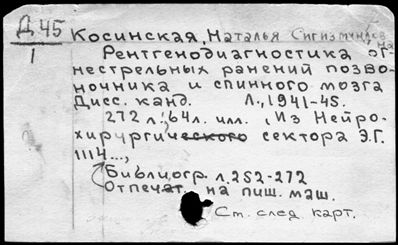 Д.45
1
Косинская, Наталья Сигизмундовна
Рентгенодиагностика ог-
нестрельных ранений позво-
ночника и спинного мозга
Дисс. канд. Л., 1941-45.
272 л., 64 л. илл. (Из Нейро-
хирургического сектора Э.Г.
1114...,
Библиогр. л. 252-272
Отпечат. на пиш. маш.
См. след. карт.